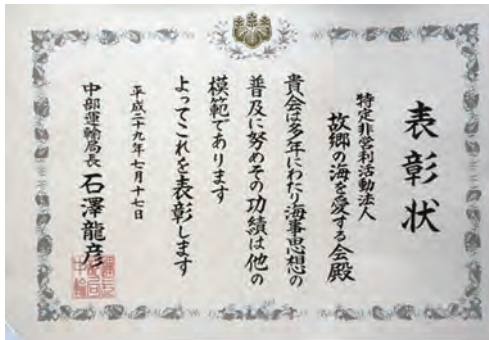 表彰状
特定非営利活動法人
故郷の海を愛する会殿
貴会は多年にわたり海事思想の
普及に努めその功績は他の
模範であります
よってこれを表彰します
平成二十九年七月十七日
中部運輸局長 石澤龍彦